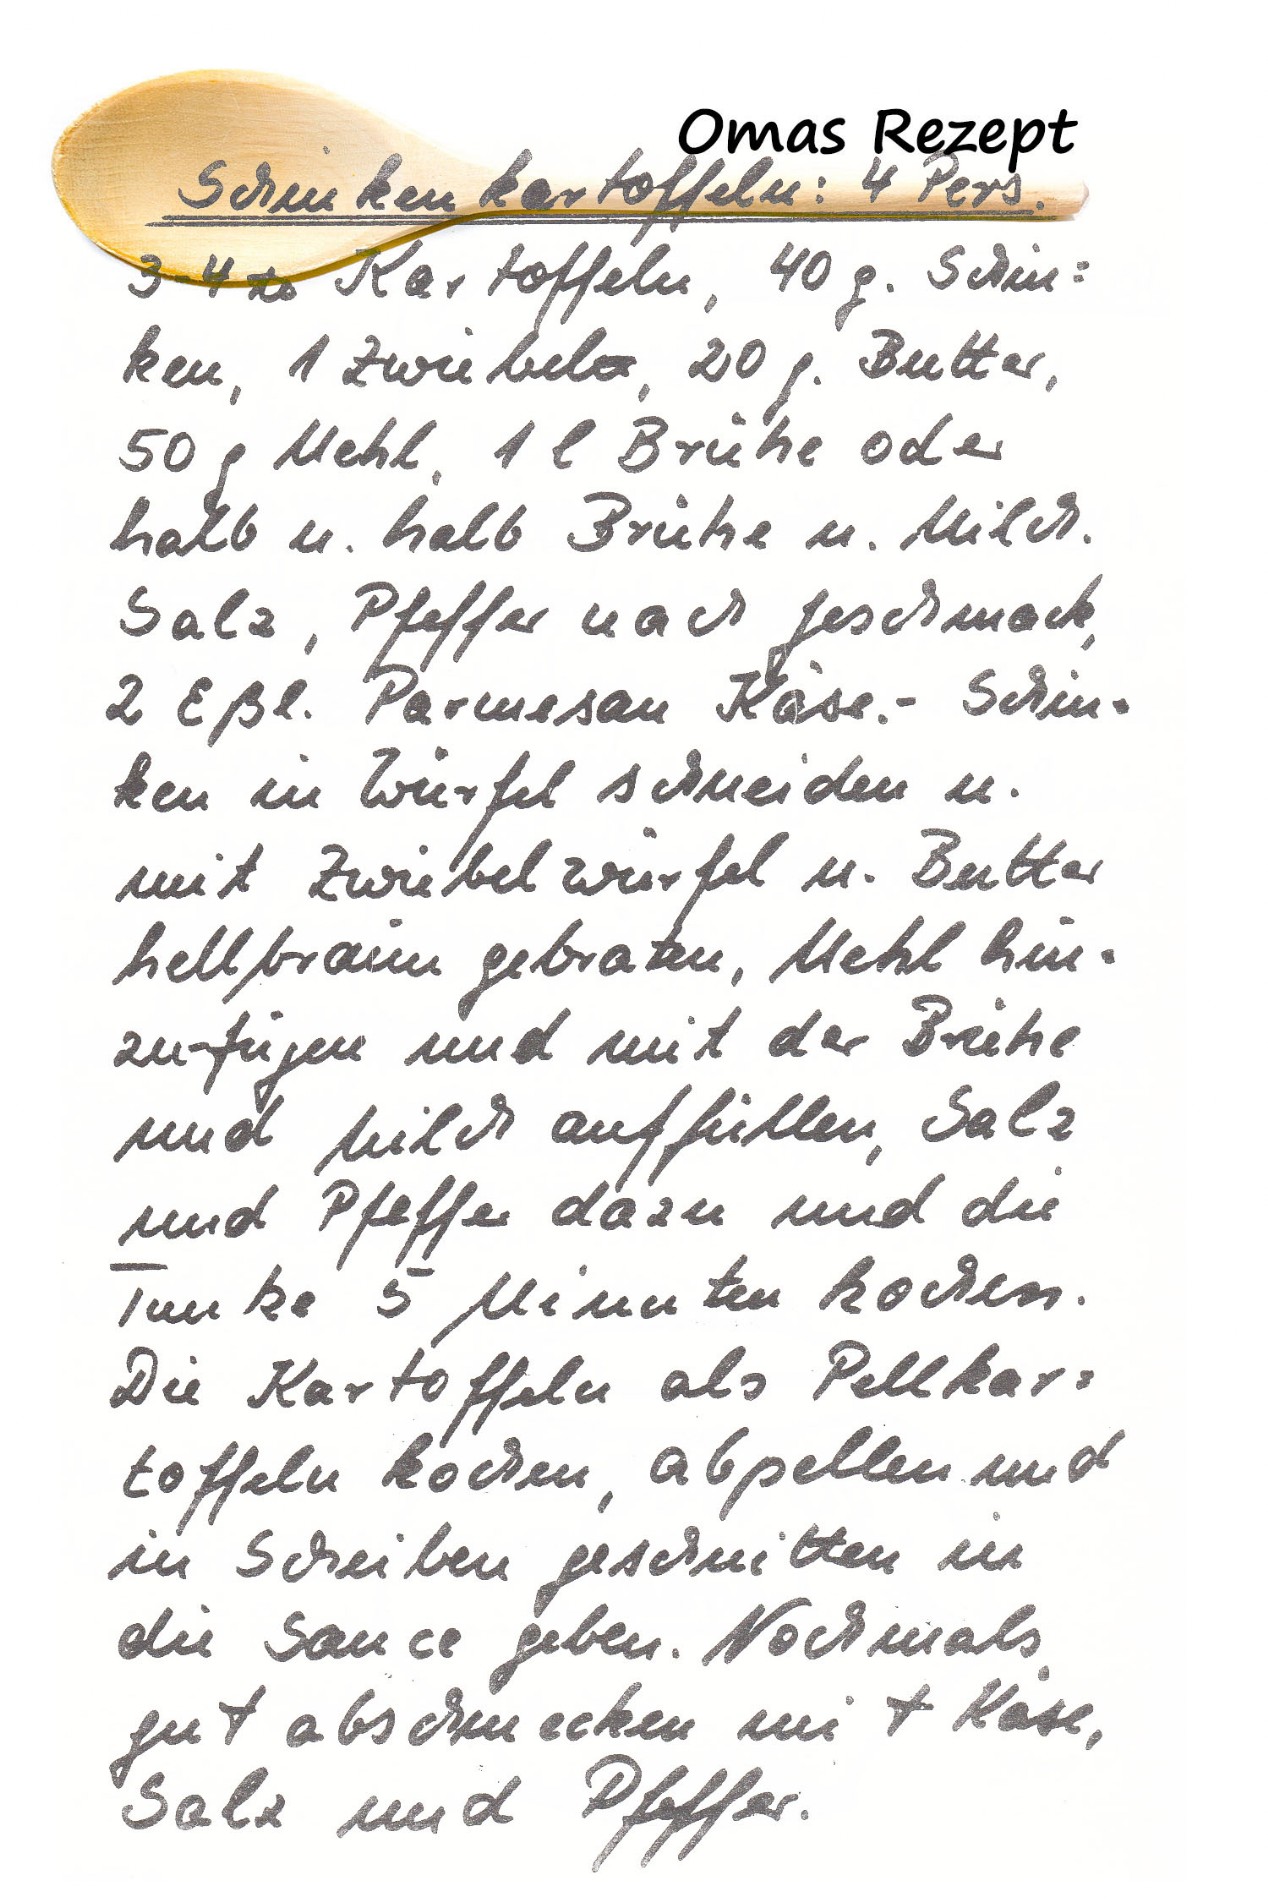 Omas Rezept
Schinkenkartoffeln: 4 Pers.
3-4 ℔ Kartoffeln, 40 g. Schin=
ken, 1 Zwiebel, 20 g. Butter,
50 g Mehl, 1 l Brühe oder
halb u. halb Brühe u. Milch.
Salz, Pfeffer nach geschmack,
2 Eßl. Parmesan Käse.- Schin-
ken in Würfel schneiden u.
mit Zwiebelwürfel u. Butter
hellbraun gebraten, Mehl hin-
zufügen und mit der Brühe
und Milch auffüllen, Salz
und Pfeffer dazu und die
Tunke 5 Minuten kochen.
Die Kartoffeln als Pellkar=
toffeln kochen, abpellen und
in Scheiben geschnitten in
die Sauce geben. Nochmals
gut abschmecken mit Käse,
Salz und Pfeffer.